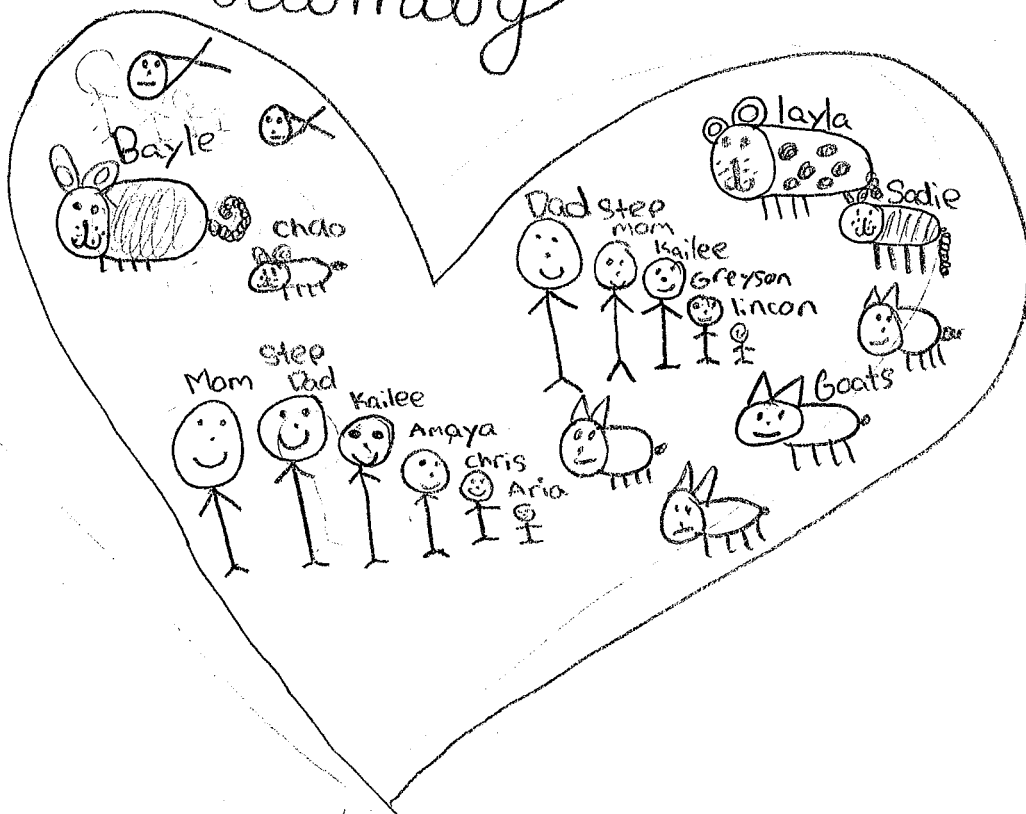 Bayle
chao
layla
Sadie
Dad step
mom
Kailee
Greyson
lincon
Goats
Mom
step
Dad
Kailee
Amaya
chris
Aria